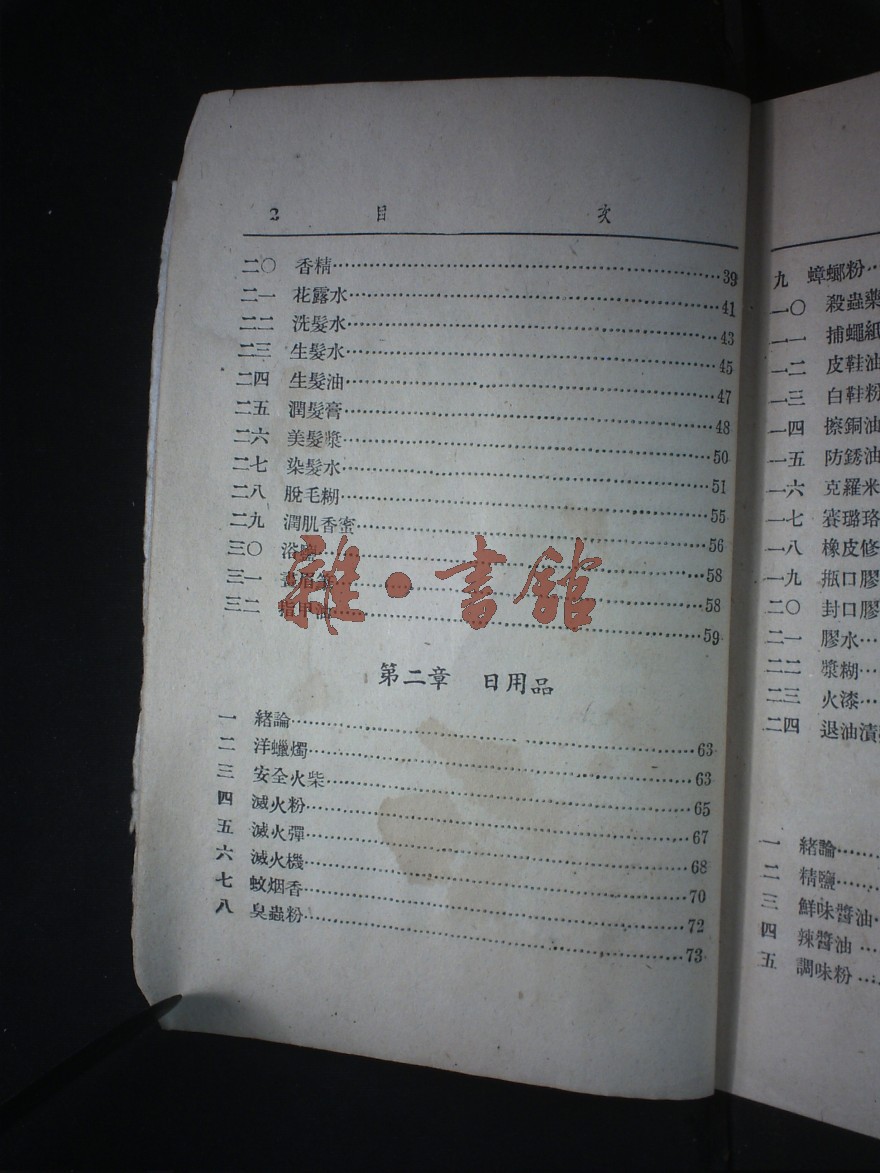 2 目 次
二〇 香精……39
二一 花露水……41
二二 洗髮水……43
二三 生髮水……45
二四 生髮油……47
二五 潤髮膏……48
二六 美髮漿……50
二七 染髮水……51
二八 脫毛糊……55
二九 潤肌香蜜……56
三〇 浴鹽……58
三一 畫眉筆……58
三二 指甲油……59
第二章 日用品
一 緒論……63
二 洋蠟燭……63
三 安全火柴……65
四 滅火粉……67
五 滅火彈……68
六 滅火機……70
七 蚊烟香……72
八 臭蟲粉……73
雜·書館
九 蟑螂粉…
一〇 殺蟲藥
一一 捕蠅紙
一二 皮鞋油
一三 白鞋粉
一四 擦銅油
一五 防銹油
一六 克羅米
一七 賽璐珞
一八 橡皮修
一九 瓶口膠
二〇 封口膠
二一 膠水…
二二 漿糊…
二三 火漆…
二四 退油漬
一 緒論……
二 精鹽……
三 鮮味醬油…
四 辣醬油…
五 調味粉…